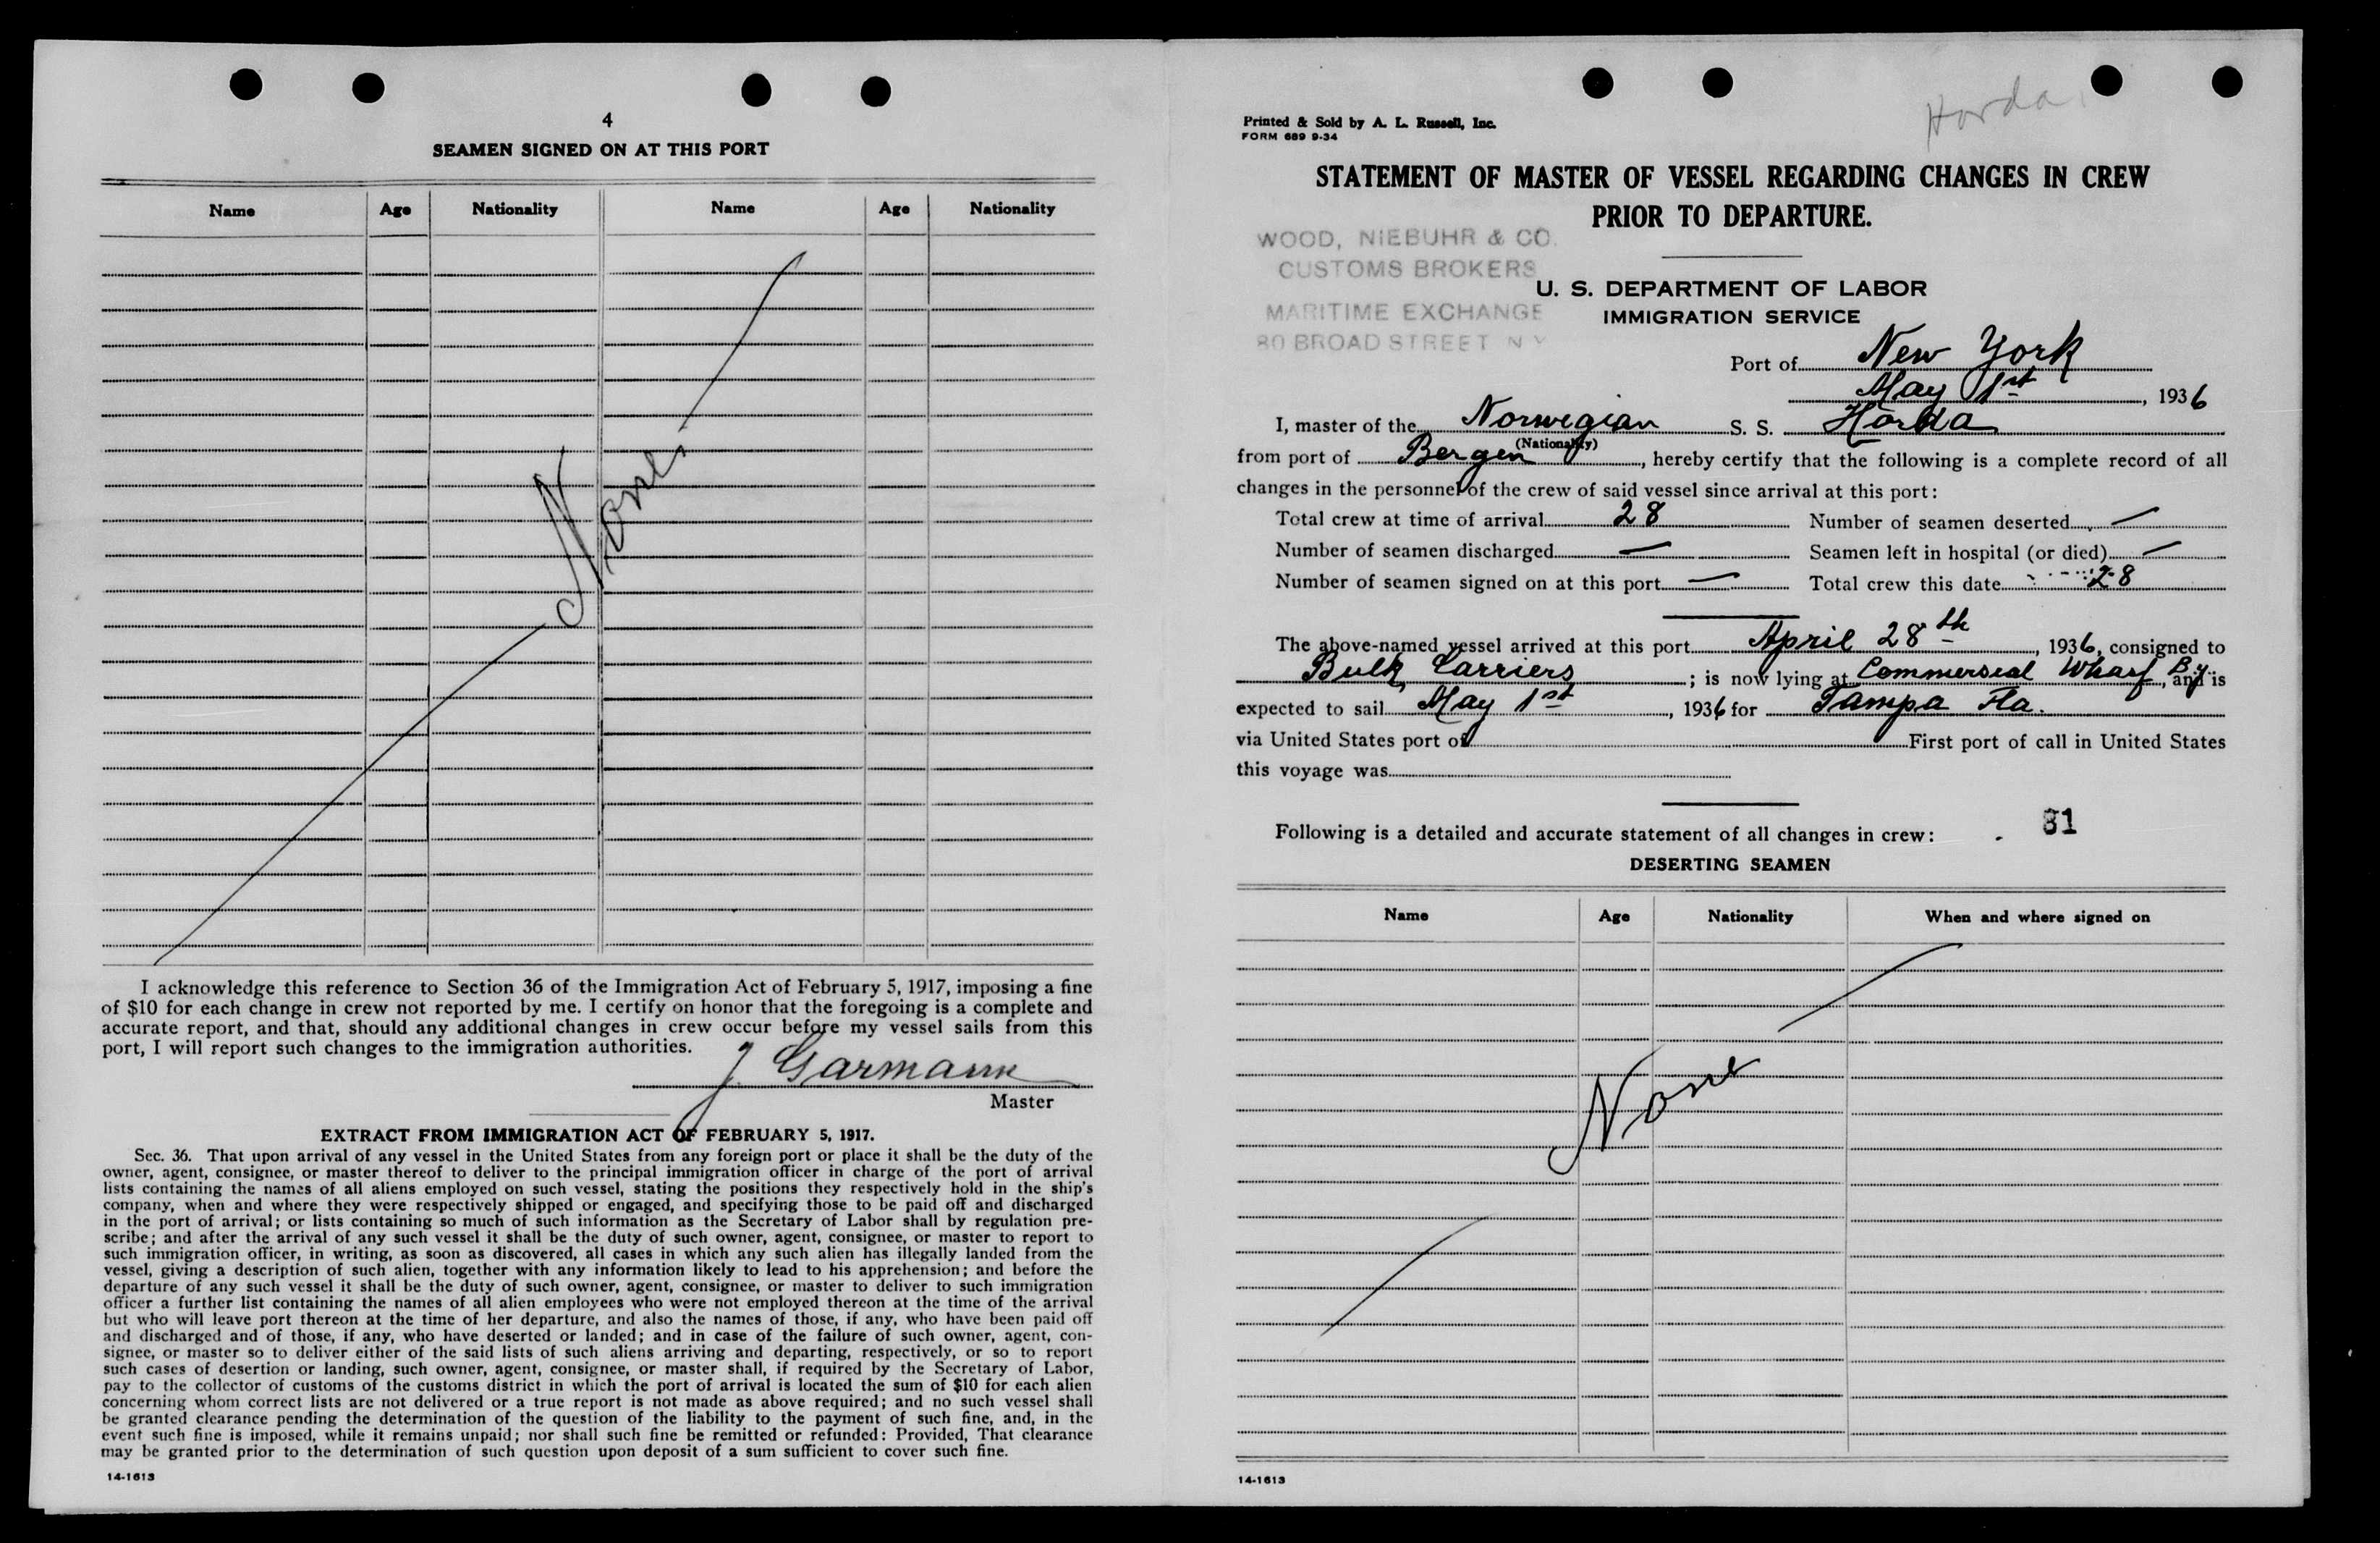 4
SEAMEN SIGNED ON AT THIS PORT
Name Age Nationality Name Age Nationality
None
I acknowledge this reference to Section 36 of the Immigration Act of February 5, 1917, imposing a fine
of $10 for each change in crew not reported by me. I certify on honor that the foregoing is a complete and
accurate report, and that, should any additional changes in crew occur before my vessel sails from this
port, I will report such changes to the immigration authorities.
J. Garmann
Master
EXTRACT FROM IMMIGRATION ACT OF FEBRUARY 5, 1917.
Sec. 36. That upon arrival of any vessel in the United States from any foreign port or place it shall be the duty of the
owner, agent, consignee, or master thereof to deliver to the principal immigration officer in charge of the port of arrival
lists containing the names of all aliens employed on such vessel, stating the positions they respectively hold in the ship's
company, when and where they were respectively shipped or engaged, and specifying those to be paid off and discharged
in the port of arrival; or lists containing so much of such information as the Secretary of Labor shall by regulation pre-
scribe; and after the arrival of any such vessel it shall be the duty of such owner, agent, consignee, or master to report to
such immigration officer, in writing, as soon as discovered, all cases in which any such alien has illegally landed from the
vessel, giving a description of such alien, together with any information likely to lead to his apprehension; and before the
departure of any such vessel it shall be the duty of such owner, agent, consignee, or master to deliver to such immigration
officer a further list containing the names of all alien employees who were not employed thereon at the time of the arrival
but who will leave port thereon at the time of her departure, and also the names of those, if any, who have been paid off
and discharged and of those, if any, who have deserted or landed; and in case of the failure of such owner, agent, con-
signee, or master so to deliver either of the said lists of such aliens arriving and departing, respectively, or so to report
such cases of desertion or landing, such owner, agent, consignee, or master shall, if required by the Secretary of Labor,
pay to the collector of customs of the customs district in which the port of arrival is located the sum of $10 for each alien
concerning whom correct lists are not delivered or a true report is not made as above required; and no such vessel shall
be granted clearance pending the determination of the question of the liability to the payment of such fine, and, in the
event such fine is imposed, while it remains unpaid; nor shall such fine be remitted or refunded: Provided, That clearance
may be granted prior to the determination of such question upon deposit of a sum sufficient to cover such fine.
14-1613
Horda
Printed & Sold by A. L. Russell, Inc.
FORM 689 9-34
STATEMENT OF MASTER OF VESSEL REGARDING CHANGES IN CREW
PRIOR TO DEPARTURE.
WOOD, NIEBUHR & CO.
CUSTOMS BROKERS
MARITIME EXCHANGE
80 BROAD STREET N Y
U. S. DEPARTMENT OF LABOR
IMMIGRATION SERVICE
Port of New York
May 1st, 1936
I, master of the Norwegian S. S. Horda
(Nationality)
from port of Bergen, hereby certify that the following is a complete record of all
changes in the personnel of the crew of said vessel since arrival at this port:
Total crew at time of arrival 28 Number of seamen deserted —
Number of seamen discharged — Seamen left in hospital (or died) —
Number of seamen signed on at this port — Total crew this date 28
The above-named vessel arrived at this port April 28th, 1936, consigned to
Bulk Carriers; is now lying at Commerseal Wharf, By. and is
expected to sail May 1st, 1936 for Tampa Fla.
via United States port of First port of call in United States
this voyage was
Following is a detailed and accurate statement of all changes in crew: 81
DESERTING SEAMEN
Name Age Nationality When and where signed on
None
14-1613